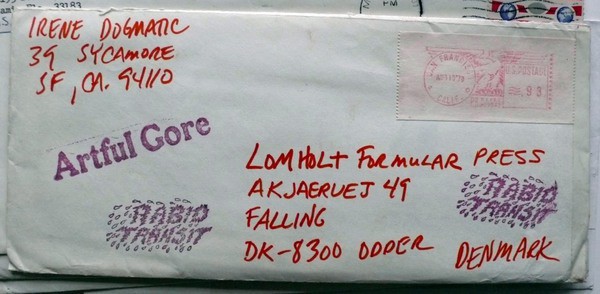 33183
PM
IRENE DOGMATIC
39 SYCAMORE
SF, CA. 94110
U.S. POSTAGE
.93
Artful Gore
LOMHOLT FORMULAR PRESS
AKJAERVEJ 49
FALLING
DK-8300 ODDER
DENMARK
RABID
TRANSIT
RABID
TRANSIT